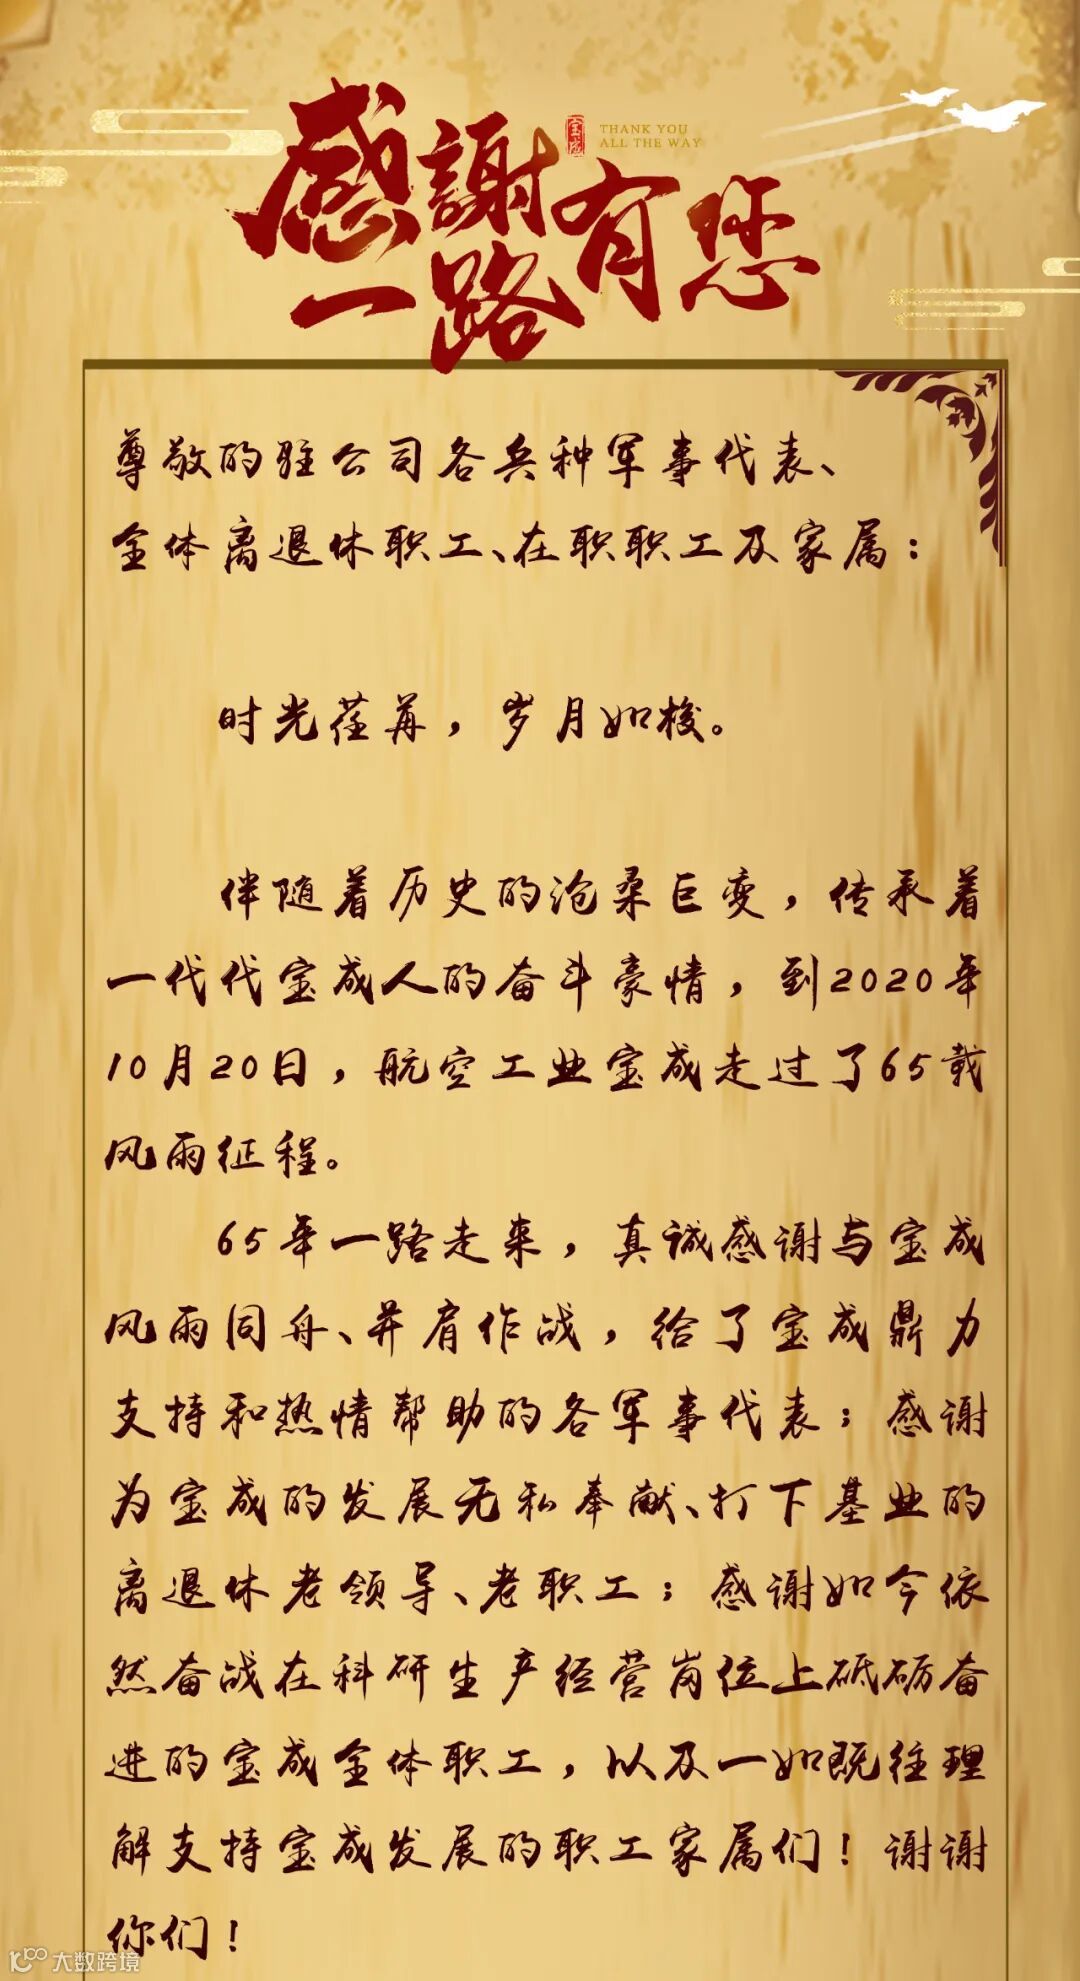 感謝
一路有您
宝成
THANK YOU
ALL THE WAY
尊敬的驻公司各兵种军事代表、
全体离退休职工、在职职工及家属：
时光荏苒，岁月如梭。
伴随着历史的沧桑巨变，传承着
一代代宝成人的奋斗豪情，到2020年
10月20日，航空工业宝成走过了65载
风雨征程。
65年一路走来，真诚感谢与宝成
风雨同舟、并肩作战，给了宝成鼎力
支持和热情帮助的各军事代表；感谢
为宝成的发展无私奉献、打下基业的
离退休老领导、老职工；感谢如今依
然奋战在科研生产经营岗位上砥砺奋
进的宝成全体职工，以及一如既往理
解支持宝成发展的职工家属们！谢谢
你们！
大数跨境